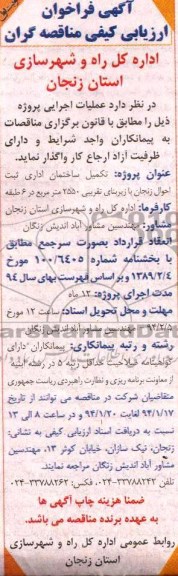 آگهی فراخوان
ارزیابی کیفی مناقصه گران
اداره کل راه و شهرسازی
استان زنجان
در نظر دارد عملیات اجرایی پروژه
ذیل را مطابق با قانون برگزاری مناقصات
به پیمانکاران واجد شرایط و دارای
ظرفیت آزاد ارجاع کار واگذار نماید.
عنوان پروژه: تکمیل ساختمان اداری ثبت
احوال زنجان با زیربنای تقریبی ۲۵۵۰ متر مربع در ۶ طبقه
کارفرما: اداره کل راه و شهرسازی استان زنجان
مشاور: مهندسین مشاور آباد اندیش زنگان
انعقاد قرارداد بصورت سرجمع مطابق
با بخشنامه شماره ۱۰۰/۶۴۰۵ مورخ
۱۳۸۹/۲/۴ و بر اساس فهرست بهای سال ۹۴
مدت اجرای پروژه: ۱۲ ماه
مهلت و محل تحویل اسناد: ساعت ۱۲ مورخ
مهندسین مشاور آباد اندیش زنگان
رشته و رتبه پیمانکاری: پیمانکاران دارای
گواهینامه صلاحیت حداقل رتبه ۵ در رشته ابنیه
از معاونت برنامه ریزی و نظارت راهبردی ریاست جمهوری
متقاضیان شرکت در مناقصه می توانند از تاریخ
۹۴/۱/۱۷ لغایت ۹۴/۱/۲۰ و در ساعت ۸ الی ۱۳
نسبت به دریافت اسناد ارزیابی کیفی به نشانی:
زنجان، نیک سازان، خیابان کوثر ۱۳، مهندسین
مشاور آباد اندیش زنگان مراجعه نمایند.
تلفن: ۳۳۷۸۸۲۴۲-۰۲۴ فکس: ۳۳۷۸۸۲۶۲-۰۲۴
ضمنا هزینه چاپ آگهی ها
به عهده برنده مناقصه می باشد.
روابط عمومی اداره کل راه و شهرسازی
استان زنجان